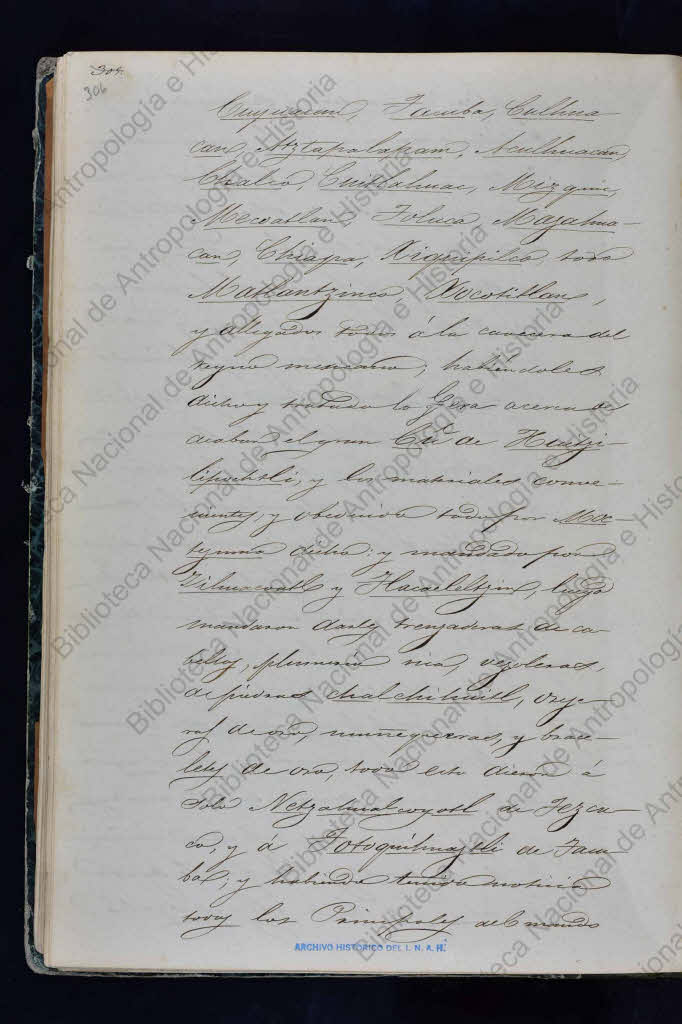 304
306
Cuyuacan, Tacuba, Culhua
can, Atztapalapam, Aculhuacan,
Chalco, Cuitlahuac, Mizquic,
Mecoatlan, Toluca, Mazahua-
can, Chiapa, Xiquipilco, todo
Matlantzinco, Xocotitlan,
y allegados todos á la cavecera del
reyno mexicano, habiéndoles
dicho y tratado la fera acerca de
acabar el gran Cú de Huitzi-
lipochtli, y los materiales conve-
nientes, y obedecido todo por Moc-
tezuma dicho: y mandado por
Zihuacoatl y Tlacaeleltzin, luego
mandaron darles trenzaderas de ca-
bellos, plumería rica, vezoleras,
de piedras chalchihuitl, oreje
ras de oro, muñequeras, y braze-
letes de oro, todo esto dieron á
solo Netzahualcoyotl de Tezcu-
co, y á Totoquihuaztli de Tacu
ba; y habiendo tenido noticia
todos los Principales del mando
ARCHIVO HISTORICO DEL I. N. A. H.
Biblioteca Nacional de Antropología e Historia